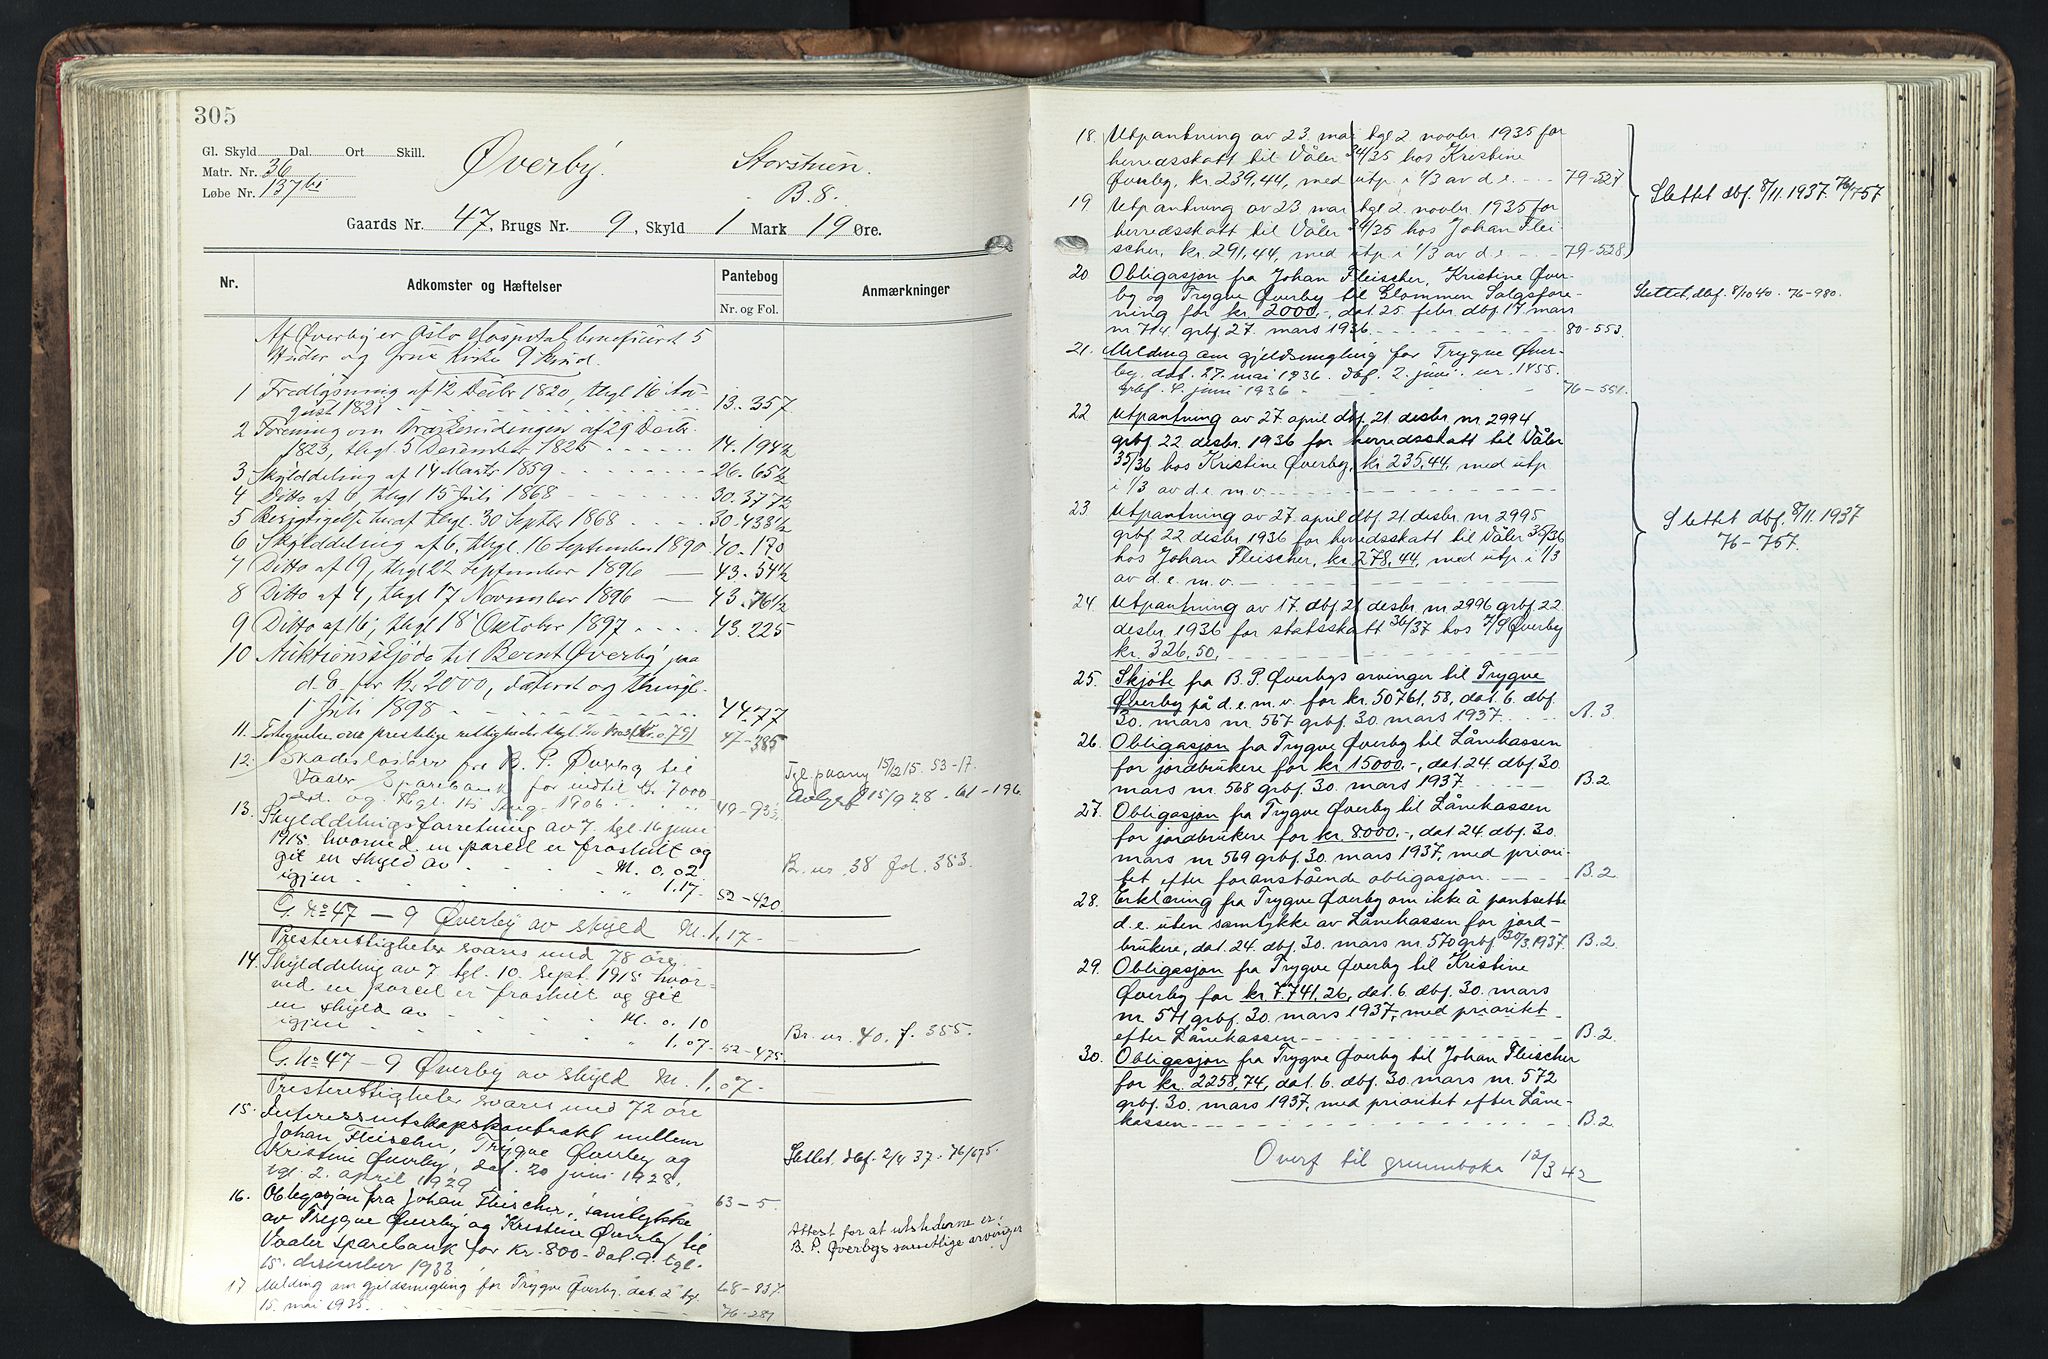 305
Gl. Skyld Dal. Ort Skill.
Matr. Nr. 36
Løbe Nr. 137
Øverby.
B. 8.
Gaards Nr. 47, Brugs Nr. 9, Skyld 1 Mark 19 Øre.
Nr. Adkomster og Hæftelser Pantebog Anmærkninger
Nr. og Fol.
Af Øverby er Oslo Hospital beneficeret 5
Huder og Grue Kirke 9 Skind.
1 Fredlysning af 12 Decbr 1820, thgl 16 Au-
gust 1821 13. 357
2 Forening om af 29 Decbr.
1823, thgl 5 December 1825 14. 194½
3 Skylddeling af 14 Marts 1859 26. 65½
4 Ditto af 6, thgl 15 Juli 1868 30. 377½
5 Berigtigelse heraf thgl. 30 Septbr 1868 30. 433½
6 Skylddeling af 6, thgl 16 September 1890 40. 170
7 Ditto af 19, thgl 22 September 1896 43. 54½
8 Ditto af 4, thgl 17 November 1896 43. 76½
9 Ditto af 16, thgl 18 Oktober 1897 43. 225
10 Auktionsskjøde til Bernt Øverby paa
d. E. for Kr 2000, dateret og thingl.
1 Juli 1898 44. 77
11. prestelige rettigheder 47-385
12. Skadesløsbrev fra B. P. Øverby til
Vaaler Sparebank for indtil Kr. 7000
dat. og thgl. Aug. 1906 49-93½
Tgl. paany 15/2 15. 53-17.
Avlyst 15/9 28. 61-196
13. Skylddelingsforretning av 7 tgl. 16 juni
1915 hvorved en parcel er fraskilt og
git en skyld av M. 0.02
igjen " 1.17 52-420
B. nr. 38 fol. 353.
G. No 47 - 9 Øverby av skyld M. 1,17
Presterettigheter svares med 78 øre.
14. Skylddeling av 7 tgl. 10. sept. 1915 hvor-
ved en parcel er fraskilt og git
en skyld av M. 0.10
igjen " 1.07 52-475
Br. nr. 40. f. 355.
G. No 47 - 9 Øverby av skyld M. 1,07
Presterettigheter svares med 72 øre
15. Interessentskapskontrakt mellem
Johan Fleischer, Trygve Øverby og
Kristine Øverby, dat. 20 juni 1928.
tgl. 2. april 1929 63-5.
Slettet dbf. 2/4 37. 76/675.
16. Obligasjon fra Johan Fleischer, samtykke
av Trygve Øverby og Kristine Øverby til
Vaaler sparebank for kr. 800.- dat. 9. tgl.
15. desember 1933 68-837
Attest for at utstederne er
B. P. Øverbys samtlige arvinger
17 Melding om gjeldsmegling for Trygve Øverby. dat. 2 tgl.
15. mai 1935. 76-281.
18. Utpantning av 23. mai tgl 2. novbr. 1935 for
herredsskatt til Våler 34/35 hos Kristine
Øverby, kr. 239,44, med utp. i 1/3 av d.e. 79-527
19. Utpantning av 23 mai tgl 2. novbr. 1935 for
herredsskatt til Våler 34/35 hos Johan Flei-
scher, kr. 291,44, med utp. i 1/3 av d.e. 79-528
Slettet dbf. 8/11. 1937. 76/757
20 Obligasjon fra Johan Fleischer, Kristine Øver-
by og Trygve Øverby til Glommen Salgsfore-
ning for kr 2000.-, dat. 25. febr. dbf. 17 mars
nr 714 grbf. 27. mars 1936. 80-553.
Slettet, dbf. 8/10 40. 76-980.
21. Melding om gjeldsmegling for Trygve Øver-
by. dat. 27. mai 1936. dbf. 2. juni. nr. 1455.
grbf. 4. juni 1936 76-551.
22 Utpantning av 27. april dbf. 21 desbr. nr 2994
grbf. 22 desbr. 1936 for herredsskatt til Våler
35/36 hos Kristine Øverby, kr. 235,44, med utp
i 1/3 av d.e. m.v.
23 Utpantning av 27. april dbf. 21 desbr. nr 2995
grbf 22 desbr 1936 for herredsskatt til Våler 35/36
hos Johan Fleischer, kr. 278,44, med utp. i 1/3
av d.e. m.v.
Slettet dbf. 8/11. 1937
76-757.
24. Utpantning av 17. dbf. 21 desbr. nr 2996 grbf. 22.
desbr. 1936 for statsskatt 36/37 hos Øverby
kr. 326,50.
25. Skjøte fra B. P. Øverbys arvinger til Trygve
Øverby på d.e.m.v. for kr. 50761,58, dat 6. dbf.
30. mars nr. 567 grbf. 30. mars 1937. A. 3.
26. Obligasjon fra Trygve Øverby til Lånekassen
for jordbrukere for kr 15000.-, dat. 24. dbf. 30
mars nr. 568 grbf. 30. mars 1937. B. 2
27. Obligasjon fra Trygve Øverby til Lånekassen
for jordbrukere for kr 8000,-, dat 24. dbf. 30.
mars nr 569 grbf. 30. mars 1937, med priori-
tet efter foranstående obligasjon. B. 2.
28. Erklæring fra Trygve Øverby om ikke å pantsette
d.e. uten samtykke av Lånekassen for jord-
brukere, dat. 24. dbf. 30. mars nr. 570 grbf. 30/3. 1937. B. 2.
29. Obligasjon fra Trygve Øverby til Kristine
Øverby for kr 7.741,26, dat. 6. dbf. 30. mars
nr. 571 grbf. 30. mars 1937, med prioritet
efter Lånekassen B. 2.
30. Obligasjon fra Trygve Øverby til Johan Fleischer
for kr. 2258,74, dat. 6. dbf. 30 mars nr. 572
grbf. 30. mars 1937, med prioritet efter Låne-
kassen B. 2.
Overf til grunnboka 12/3 42